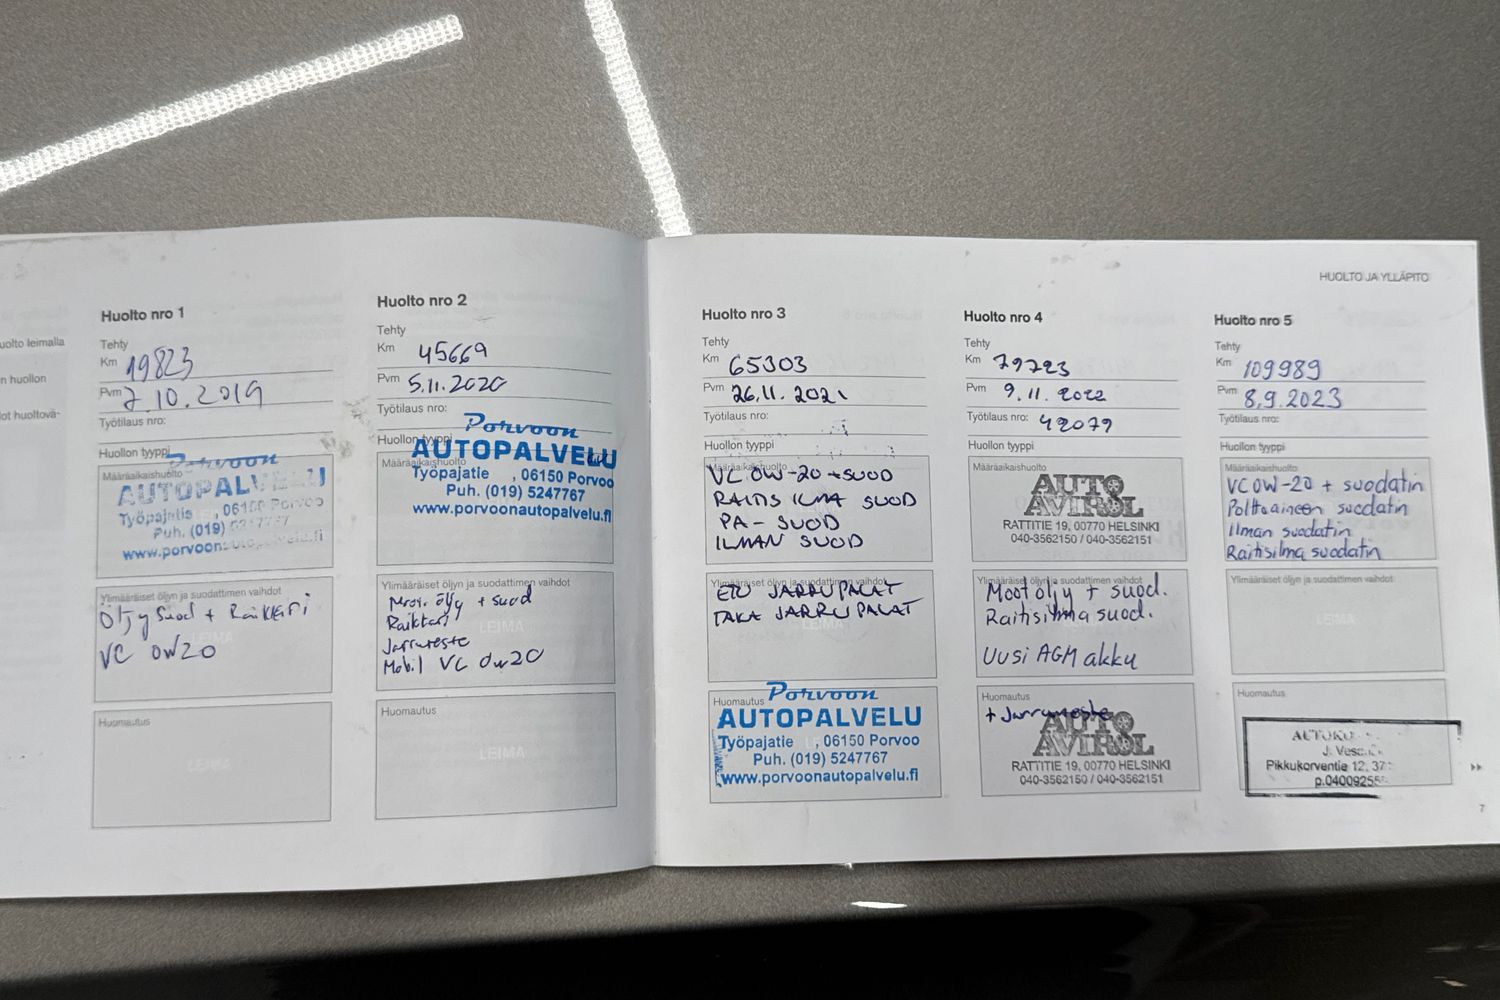 uolto leimalla
n huollon
lot huoltovä-
Huolto nro 1
Tehty
Km 19823
Pvm 7.10.2019
Työtilaus nro:
Huollon tyyppi
Määräaikaishuolto
Porvoon
AUTOPALVELU
Työpajatie , 06150 Porvoo
Puh. (019) 5247767
www.porvoonautopalvelu.fi
Ylimääräiset öljyn ja suodattimen vaihdot
Öljy suod + Raikkari
VC 0w20
LEIMA
Huomautus
LEIMA
Huolto nro 2
Tehty
Km 45669
Pvm 5.11.2020
Työtilaus nro:
Huollon tyyppi
Määräaikaishuolto
Porvoon
AUTOPALVELU
Työpajatie , 06150 Porvoo
Puh. (019) 5247767
www.porvoonautopalvelu.fi
Ylimääräiset öljyn ja suodattimen vaihdot
Moot. öljy + suod
Raikkari
Jarrureste
Mobil VC 0w20
LEIMA
Huomautus
LEIMA
HUOLTO JA YLLÄPITO
Huolto nro 3
Tehty
Km 65303
Pvm 26.11.2021
Työtilaus nro:
Huollon tyyppi
Määräaikaishuolto
VC 0W-20 +SUOD
RAITIS ILMA SUOD
PA- SUOD
ILMAN SUOD
Ylimääräiset öljyn ja suodattimen vaihdot
ETU JARRUPALAT
TAKA JARRUPALAT
Huomautus
Porvoon
AUTOPALVELU
Työpajatie , 06150 Porvoo
Puh. (019) 5247767
www.porvoonautopalvelu.fi
Huolto nro 4
Tehty
Km 79723
Pvm 9.11.2022
Työtilaus nro: 42079
Huollon tyyppi
Määräaikaishuolto
AUTO
AVIROL
RATTITIE 19, 00770 HELSINKI
040-3562150 / 040-3562151
Ylimääräiset öljyn ja suodattimen vaihdot
Moot öljy + suod.
Raitisilma suod.
Uusi AGM akku
Huomautus
+ Jarruneste
AUTO
AVIROL
RATTITIE 19, 00770 HELSINKI
040-3562150 / 040-3562151
Huolto nro 5
Tehty
Km 109989
Pvm 8.9.2023
Työtilaus nro:
Huollon tyyppi
Määräaikaishuolto
VC 0W-20 + suodatin
Polttoaineen suodatin
Ilman suodatin
Raitisilma suodatin
Ylimääräiset öljyn ja suodattimen vaihdot
LEIMA
Huomautus
J.
Pikkukorventie 12, 37
p.04009255
7